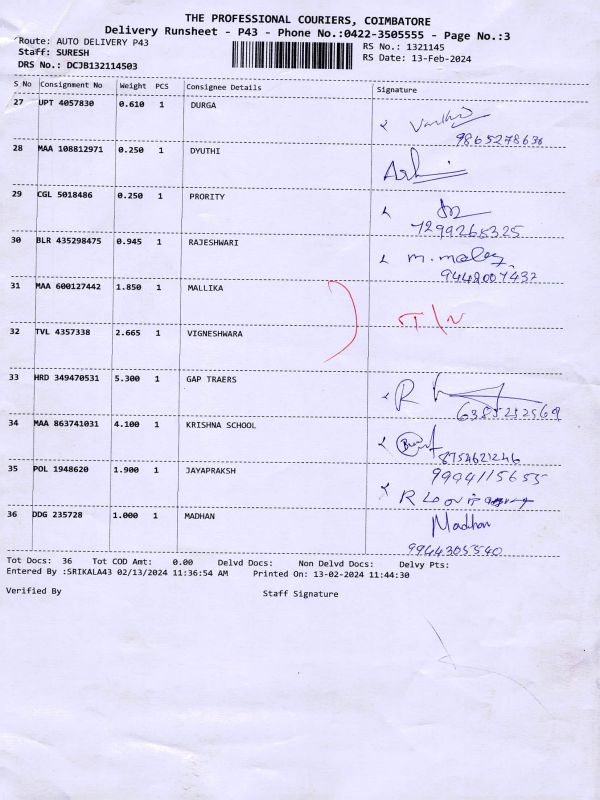 THE PROFESSIONAL COURIERS, COIMBATORE
Delivery Runsheet - P43 - Phone No.:0422-3505555 - Page No.:3
Route: AUTO DELIVERY P43 RS No.: 1321145
Staff: SURESH RS Date: 13-Feb-2024
DRS No.: DCJB132114503
S No Consignment No Weight PCS Consignee Details Signature
27 UPT 4057830 0.610 1 DURGA
9865278636
28 MAA 108812971 0.250 1 DYUTHI
29 CGL 5018486 0.250 1 PRORITY
7299265325
30 BLR 435298475 0.945 1 RAJESHWARI
9442007437
31 MAA 600127442 1.850 1 MALLIKA
T/N
32 TVL 4357338 2.665 1 VIGNESHWARA
33 HRD 349470531 5.300 1 GAP TRAERS
6385252569
34 MAA 863741031 4.100 1 KRISHNA SCHOOL
8754621246
35 POL 1948620 1.900 1 JAYAPRAKSH
9994115655
36 DDG 235728 1.000 1 MADHAN Madhan
9944305540
Tot Docs: 36 Tot COD Amt: 0.00 Delvd Docs: Non Delvd Docs: Delvy Pts:
Entered By :SRIKALA43 02/13/2024 11:36:54 AM Printed On: 13-02-2024 11:44:30
Verified By Staff Signature